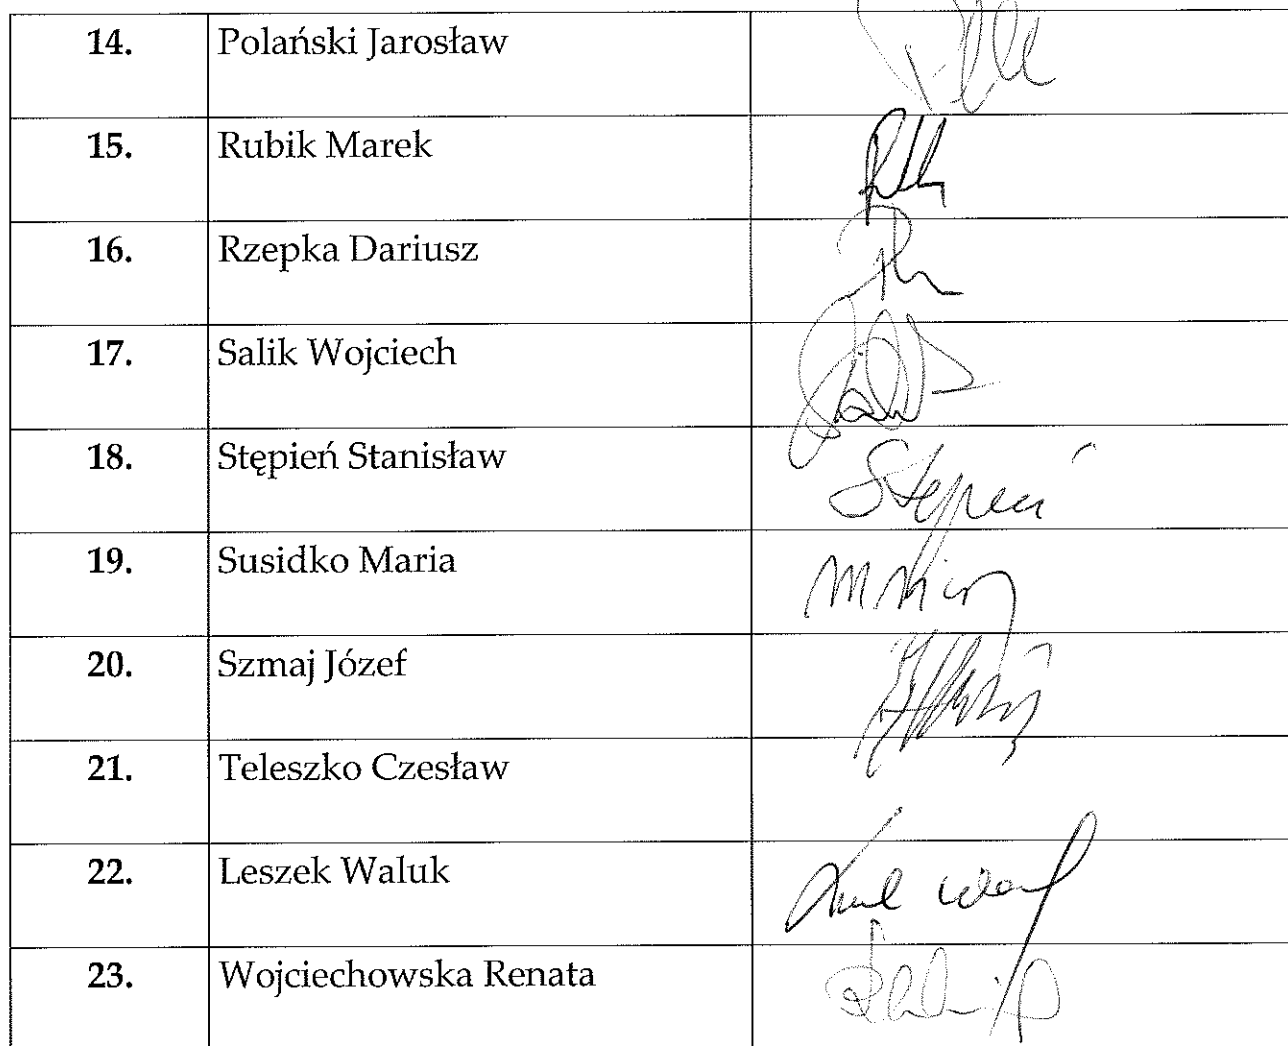 14. Polański Jarosław
15. Rubik Marek
16. Rzepka Dariusz
17. Salik Wojciech
18. Stępień Stanisław
Stępień
19. Susidko Maria
20. Szmaj Józef
21. Teleszko Czesław
22. Leszek Waluk
23. Wojciechowska Renata